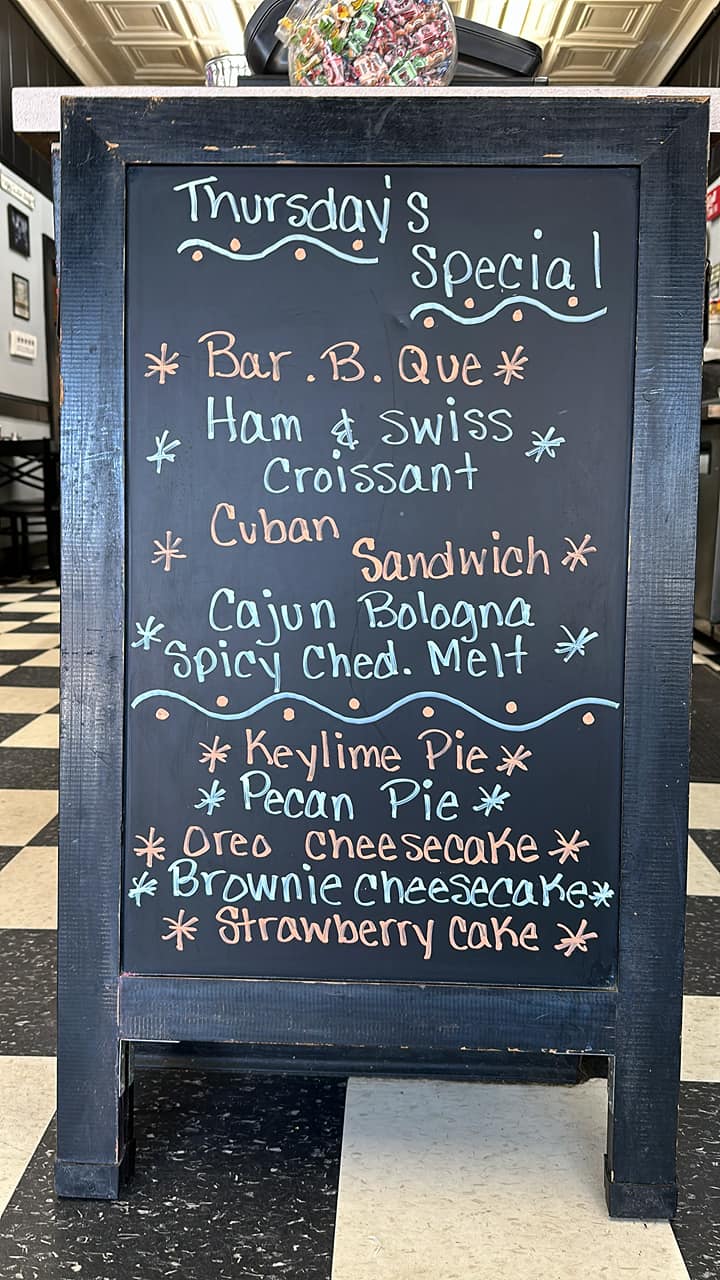 Thursday's
Special
* Bar.B.Que *
Ham & Swiss
* Croissant *
Cuban
* Sandwich *
Cajun Bologna
* Spicy Ched. Melt *
* Keylime Pie *
* Pecan Pie *
* Oreo Cheesecake *
* Brownie Cheesecake *
* Strawberry Cake *